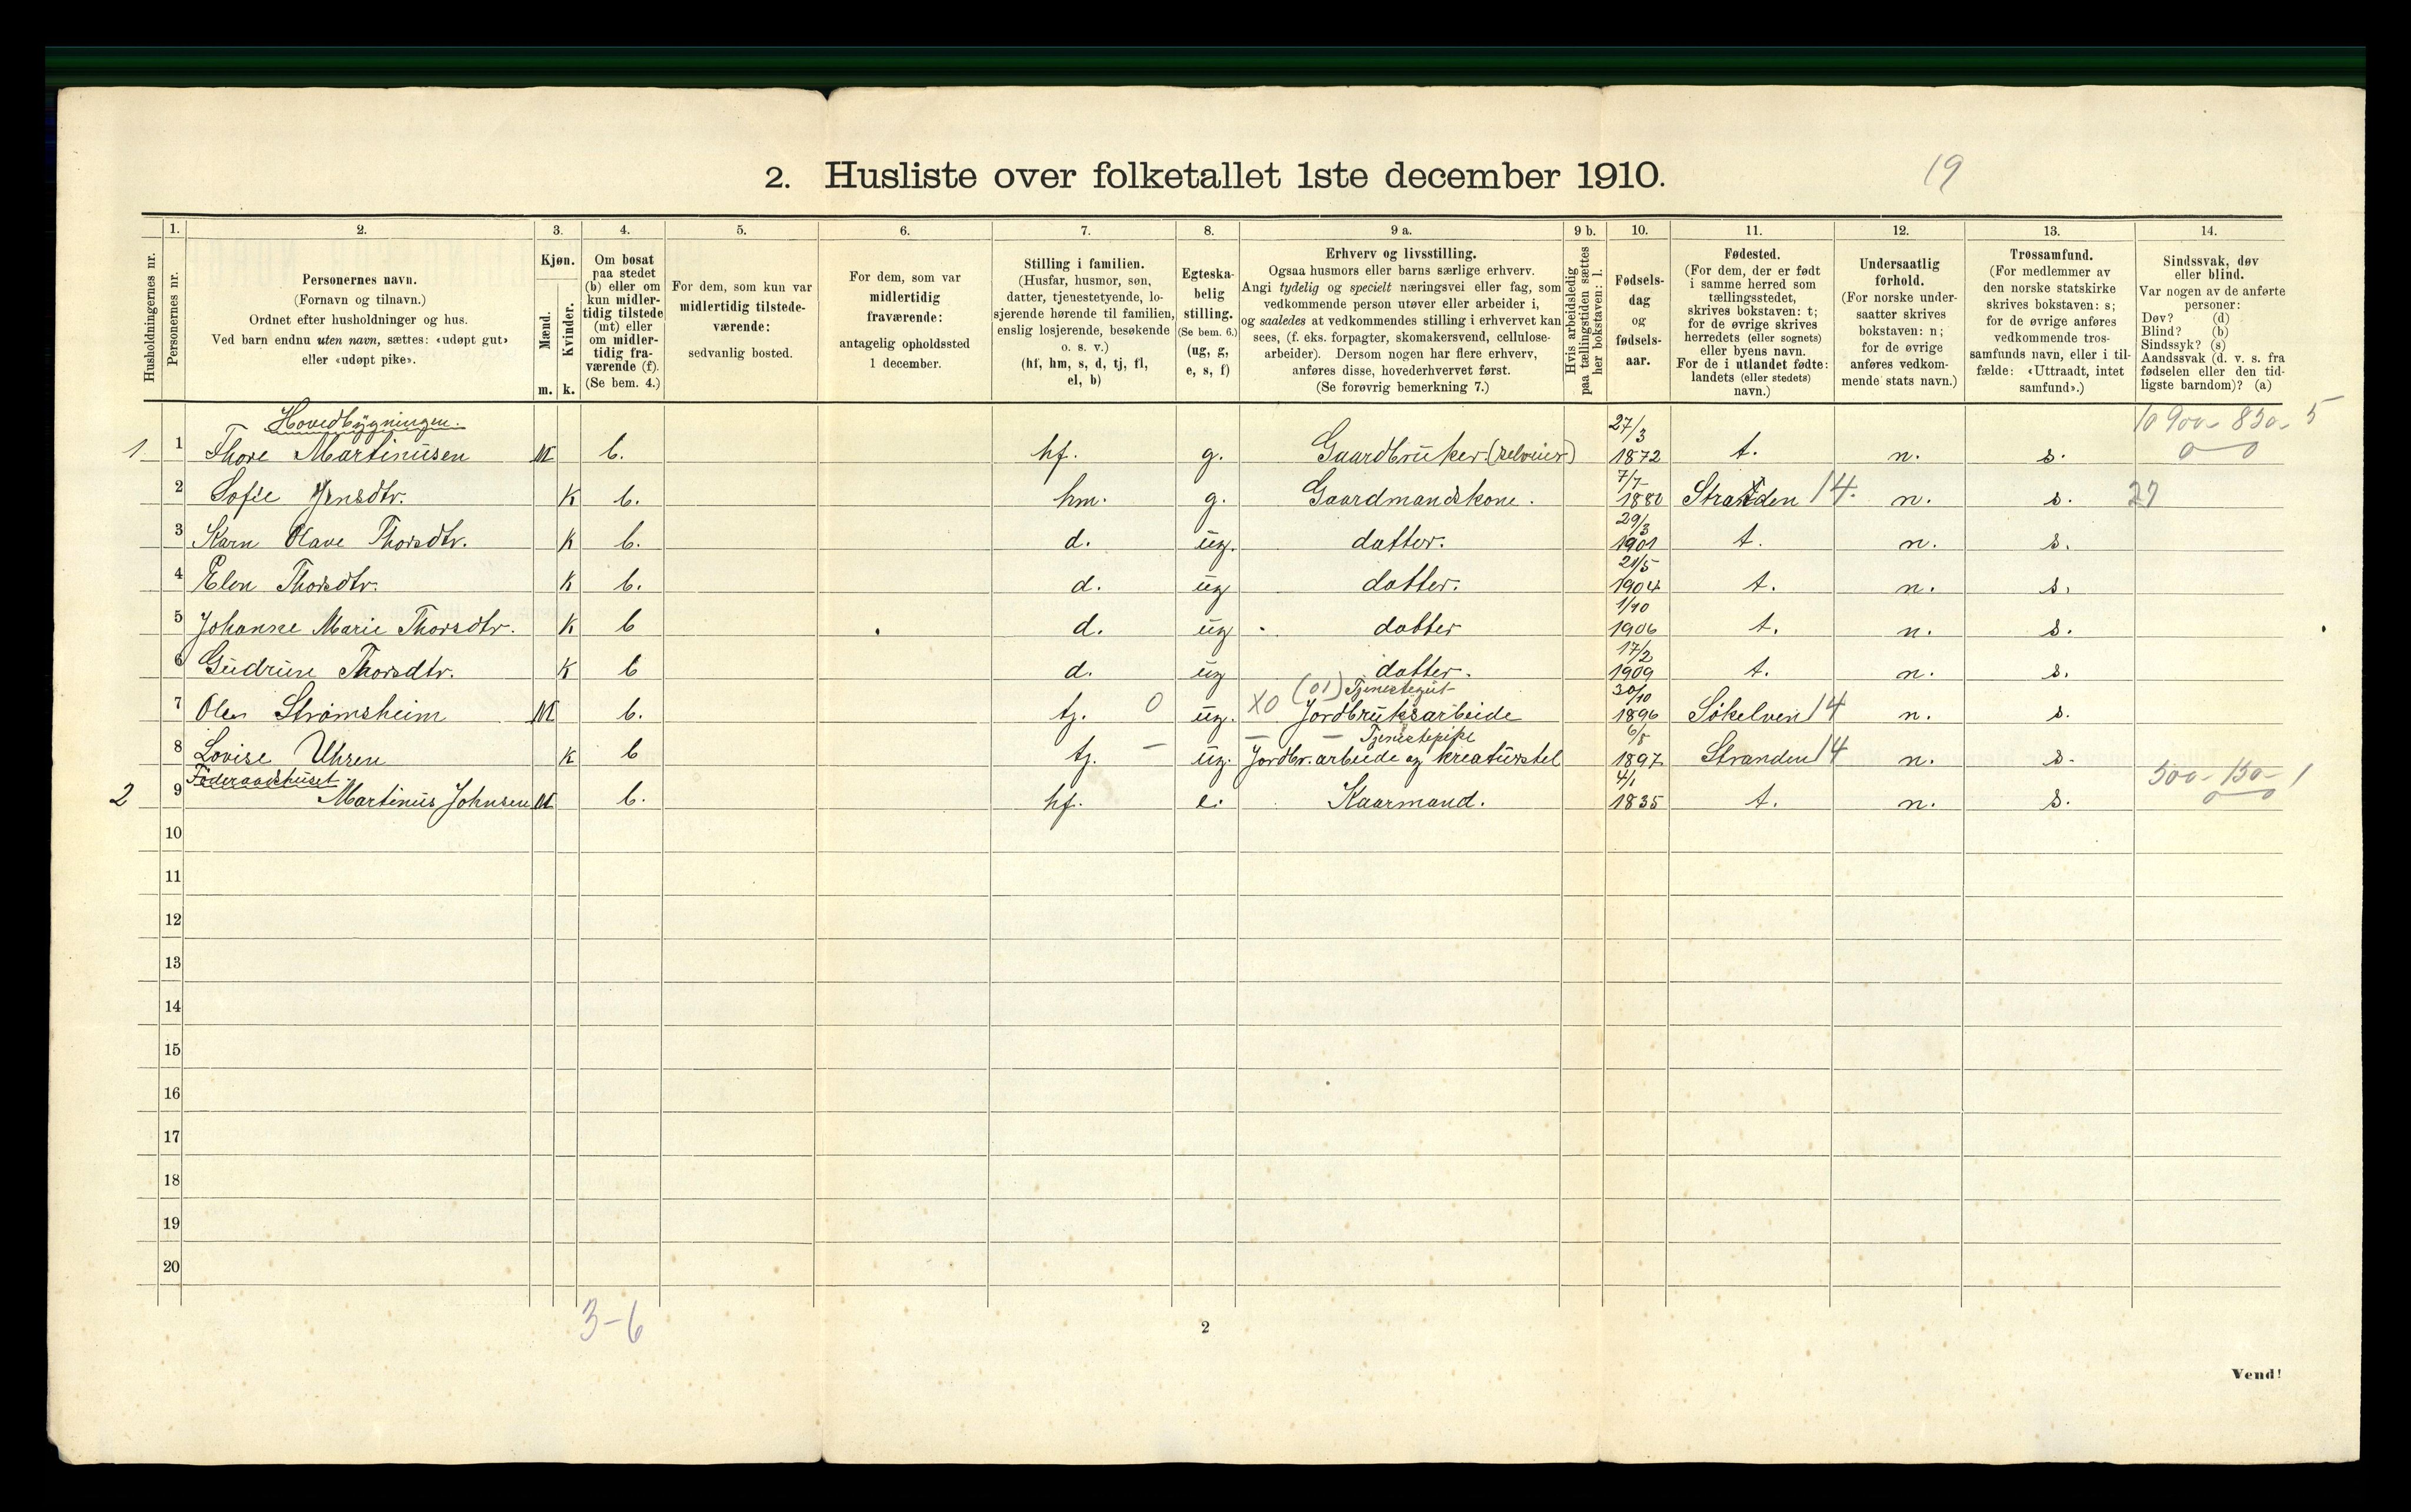 2. Husliste over folketallet 1ste december 1910.
19
1. 2. 3. 4. 5. 6. 7. 8. 9 a. 9 b. 10. 11. 12. 13. 14.
Husholdningernes nr.
Personernes nr.
Personernes navn.
(Fornavn og tilnavn.)
Ordnet efter husholdninger og hus.
Ved barn endnu uten navn, sættes: «udøpt gut»
eller «udøpt pike».
Kjøn.
Mænd.
Kvinder.
m. k.
Om bosat
paa stedet
(b) eller om
kun midler-
tidig tilstede
(mt) eller
om midler-
tidig fra-
værende (f).
(Se bem. 4.)
For dem, som kun var
midlertidig tilstede-
værende:
sedvanlig bosted.
For dem, som var
midlertidig
fraværende:
antagelig opholdssted
1 december.
Stilling i familien.
(Husfar, husmor, søn,
datter, tjenestetyende, lo-
sjerende hørende til familien,
enslig losjerende, besøkende
o. s. v.)
(hf, hm, s, d, tj, fl,
el, b)
Egteska-
belig
stilling.
(Se bem. 6.)
(ug, g,
e, s, f)
Erhverv og livsstilling.
Ogsaa husmors eller barns særlige erhverv.
Angi tydelig og specielt næringsvei eller fag, som
vedkommende person utøver eller arbeider i,
og saaledes at vedkommendes stilling i erhvervet kan
sees, (f. eks. forpagter, skomakersvend, cellulose-
arbeider). Dersom nogen har flere erhverv,
anføres disse, hovederhvervet først.
(Se forøvrig bemerkning 7.)
Hvis arbeidsledig
paa tællingstiden sættes
her bokstaven: l.
Fødsels-
dag
og
fødsels-
aar.
Fødested.
(For dem, der er født
i samme herred som
tællingsstedet,
skrives bokstaven: t;
for de øvrige skrives
herredets (eller sognets)
eller byens navn.
For de i utlandet fødte:
landets (eller stedets)
navn.)
Undersaatlig
forhold.
(For norske under-
saatter skrives
bokstaven: n;
for de øvrige
anføres vedkom-
mende stats navn.)
Trossamfund.
(For medlemmer av
den norske statskirke
skrives bokstaven: s;
for de øvrige anføres
vedkommende tros-
samfunds navn, eller i til-
fælde: «Uttraadt, intet
samfund».)
Sindssvak, døv
eller blind.
Var nogen av de anførte
personer:
Døv? (d)
Blind? (b)
Sindssyk? (s)
Aandssvak (d. v. s. fra
fødselen eller den tid-
ligste barndom)? (a)
Hovedbygningen. 27/3 10 900 - 850 - 5
1 1 Thore Martinusen M b. hf. g. Gaardbruker (selveier) 1872 t. n. s. 0 0
2 Sofie Jensdtr. K b. hm. g. Gaardmandskone. 7/7 1880 Stranden 14. n. s. 27
3 Karn Olave Thorsdtr. K b. d. ug. datter. 29/3 1901 t. n. s.
4 Elen Thorsdtr. K b. d. ug datter. 21/5 1904 t. n. s.
5 Johanne Marie Thorsdtr. K b d. ug datter 1/10 1906 t. n. s.
6 Gudrun Thorsdtr. K b d. ug datter. 17/2 1909 t. n. s.
(01) Tjenestegut
7 Olen Strømsheim M b. tj. 0 ug. XO Jordbruksarbeide 30/10 1896 Søkelven 14 n. s.
— Tjenestepike
8 Lovise Uhren K b tj. — ug. Jordbr. arbeide og kreaturstel 6/8 1897 Stranden 14 n. s.
Föderaadshuset 500 - 150 - 1
2 9 Martinus Johnsen M b. hf. e. Kaarmand. 4/1 1835 t. n. s. 0 0
10
11
12
13
14
15
16
17
18
19
20
3-6
2
Vend!